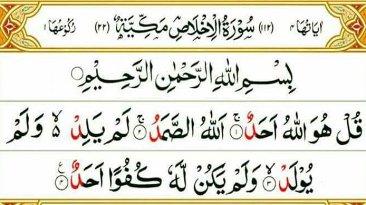 اٰیَاتُهَا ۴ (۱۱۲) سُوْرَةُ الْاِخْلَاصِ مَكِّيَّةٌ (۲۲) رُكُوْعُهَا ۱
بِسْمِ اللّٰهِ الرَّحْمٰنِ الرَّحِيْمِ
قُلْ هُوَ اللّٰهُ اَحَدٌ ۚ‏﴿۱﴾ اَللّٰهُ الصَّمَدُ ۚ‏﴿۲﴾ لَمْ يَلِدْ ۙ۬ وَلَمْ
يُوْلَدْ ۙ‏﴿۳﴾ وَلَمْ يَكُنْ لَّهٗ كُفُوًا اَحَدٌ ﴿۴﴾ ع